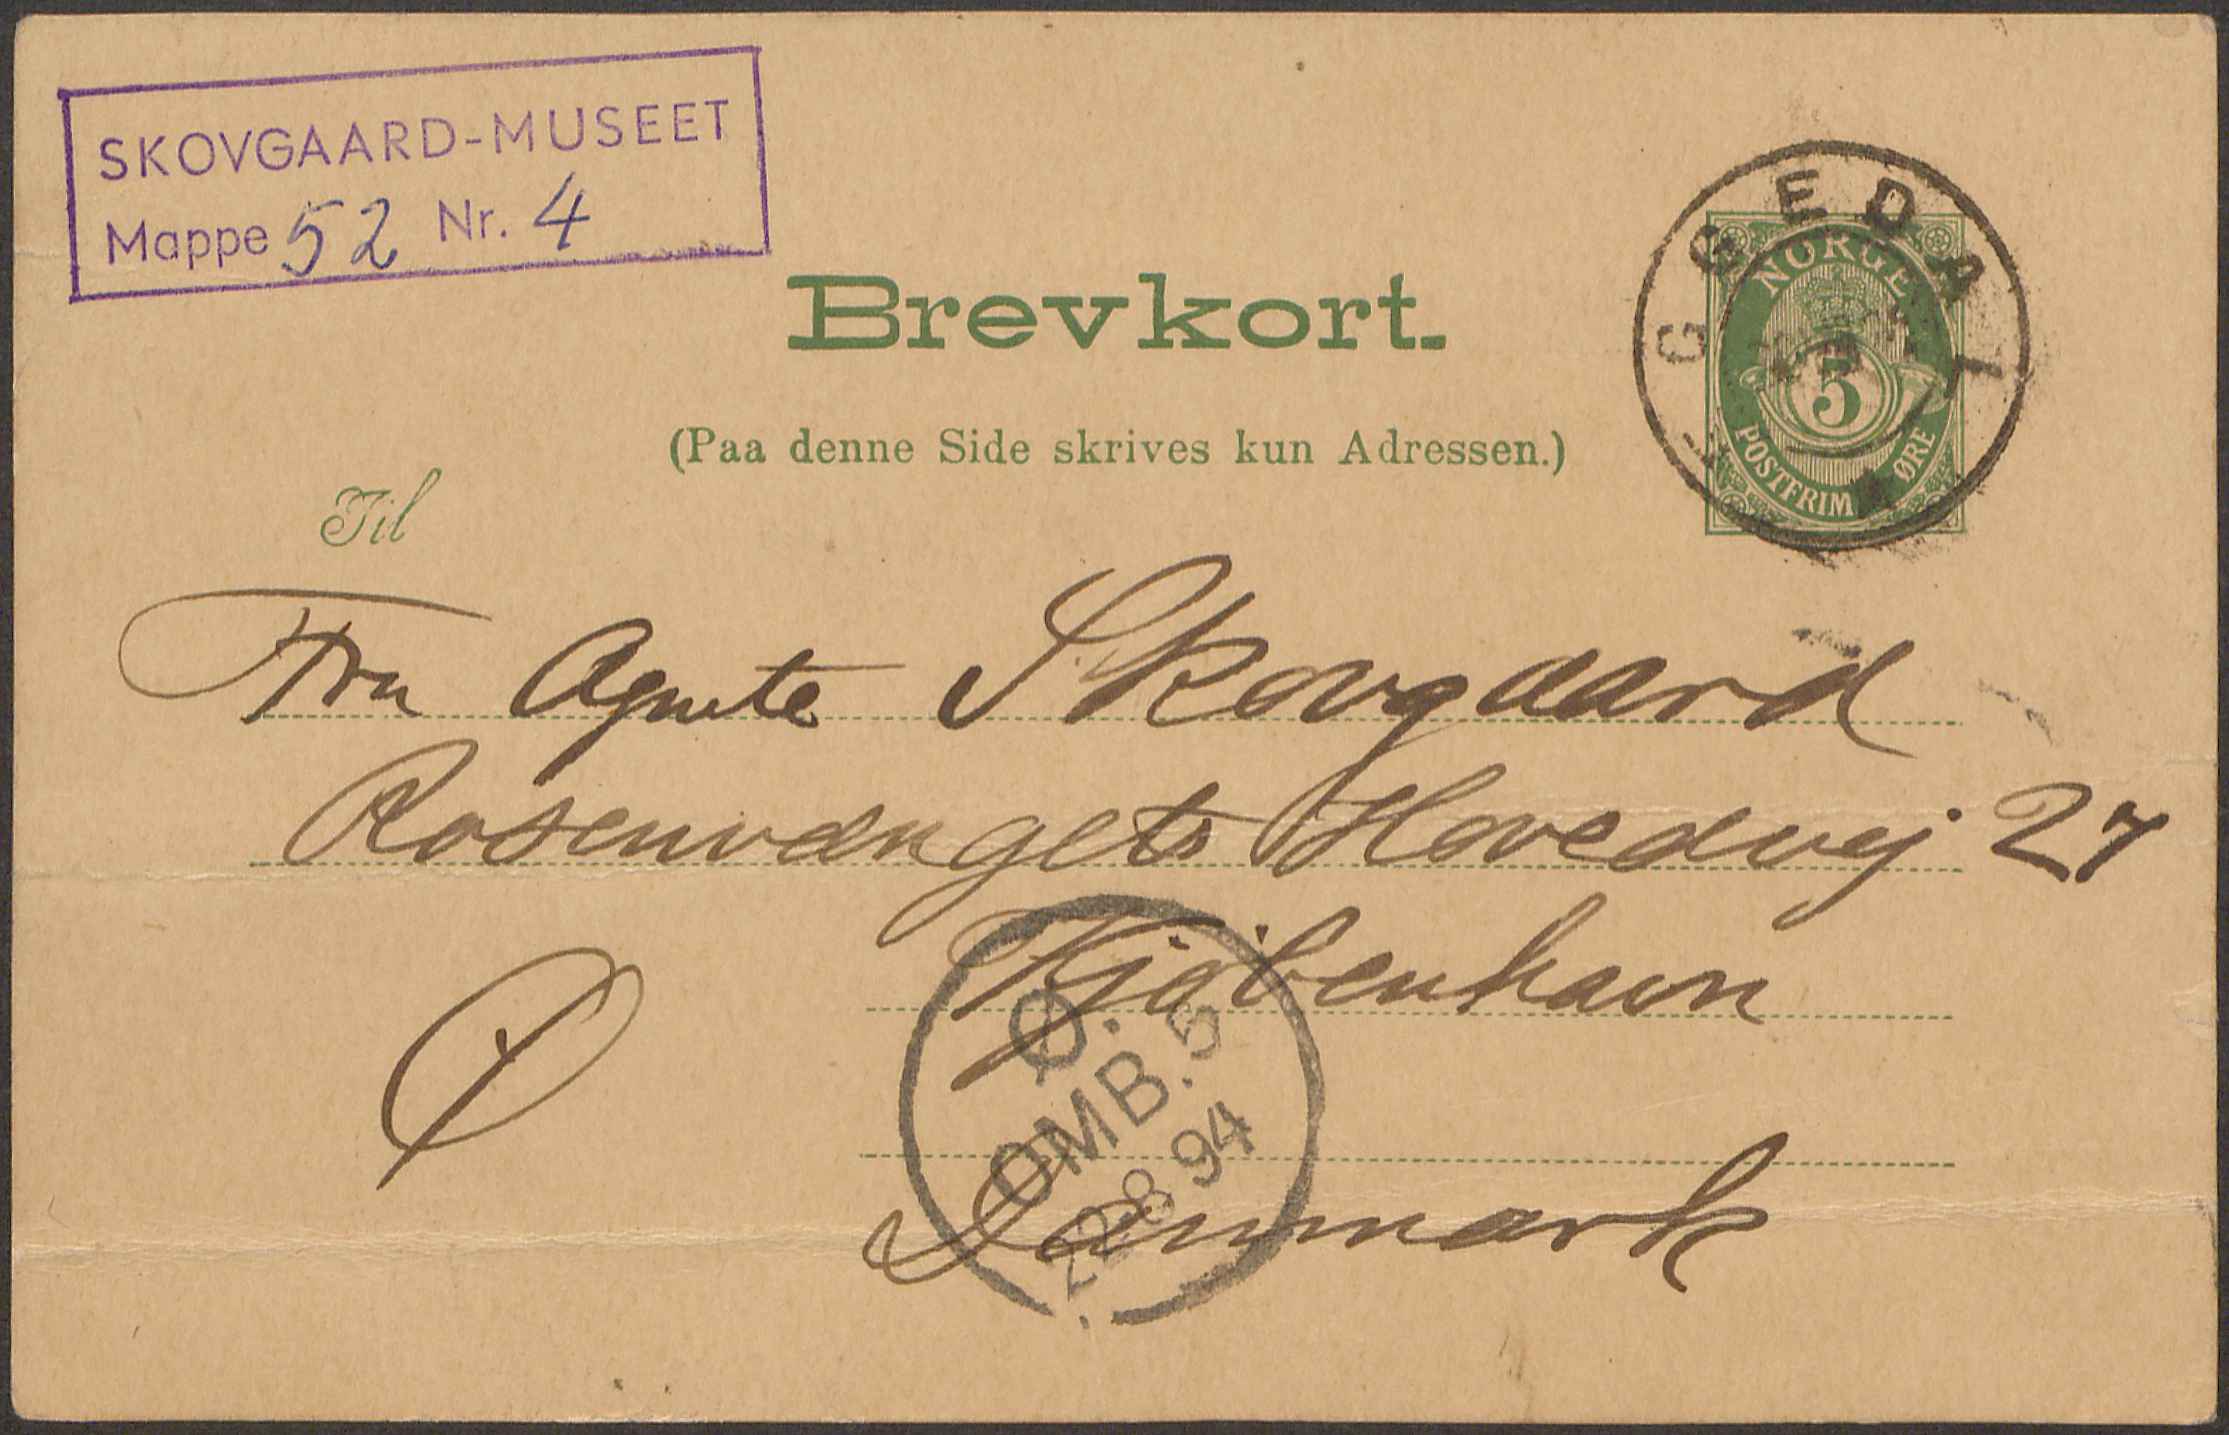 SKOVGAARD-MUSEET
Mappe 52 Nr. 4
Brevkort.
(Paa denne Side skrives kun Adressen.)
GGEDAL
NORGE
5
POSTFRIM ØRE
Til
Fru Agnete Skovgaard
Rosenvængets Hovedvej 27
Kjöbenhavn
Ø
Danmark
Ø.
OMB. 5
22 8 94